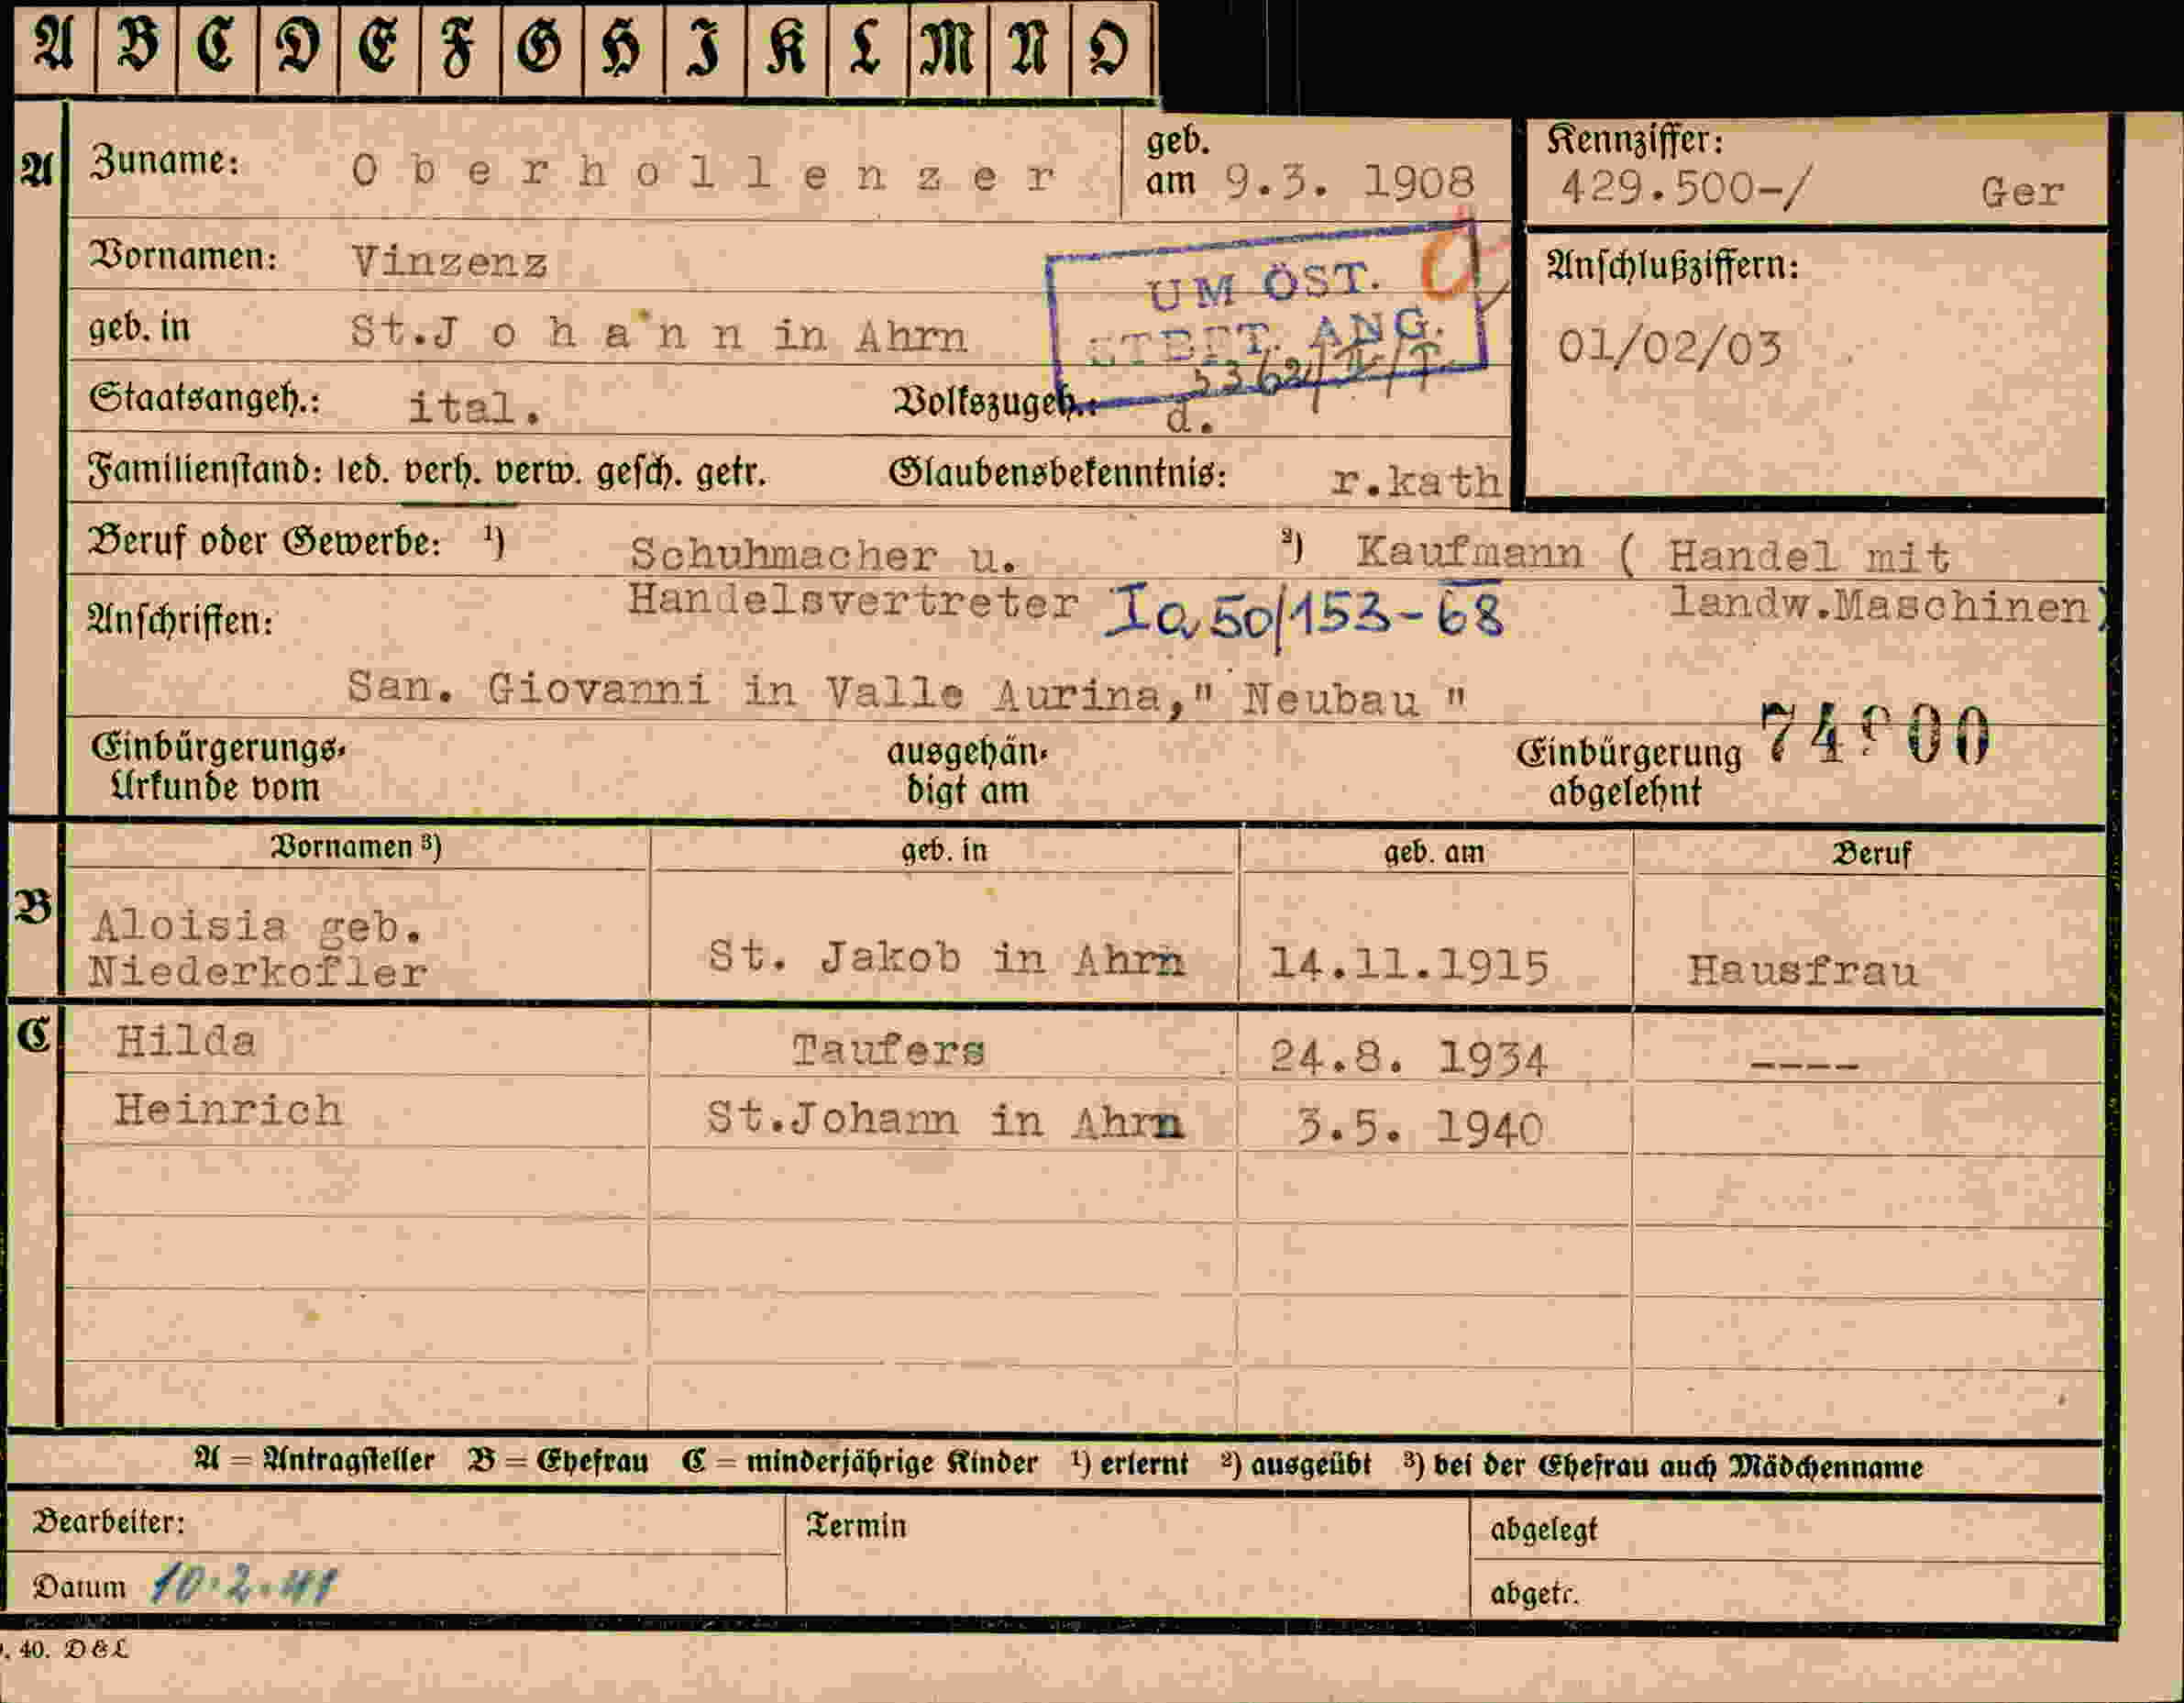 A B C D E F G H I K L M N O
A Zuname: Oberhollenzer geb. am 9.3. 1908 Kennziffer: 429.500-/ Ger
Vornamen: Vinzenz
UM ÖST. ANG.
Anschlußziffern:
geb. in St.Johann in Ahrn
01/02/03
Staatsangeh.: ital. Volkszugeh.: d.
Familienstand: led. verh. verw. gesch. getr. Glaubensbekenntnis: r.kath
Beruf oder Gewerbe: 1) Schuhmacher u. 2) Kaufmann ( Handel mit
Handelsvertreter Ia 50/153-68 landw.Maschinen)
Anschriften:
San. Giovanni in Valle Aurina," Neubau "
Einbürgerungs- ausgehän- Einbürgerung
Urkunde vom digt am abgelehnt
Vornamen 3) geb. in geb. am Beruf
B Aloisia geb.
Niederkofler St. Jakob in Ahrn 14.11.1915 Hausfrau
C Hilda Taufers 24.8. 1934 ----
Heinrich St.Johann in Ahrn 3.5. 1940
A = Antragsteller B = Ehefrau C = minderjährige Kinder 1) erlernt 2) ausgeübt 3) bei der Ehefrau auch Mädchenname
Bearbeiter: Termin abgelegt
Datum 10.2.41 abgetr.
. 40. D&L